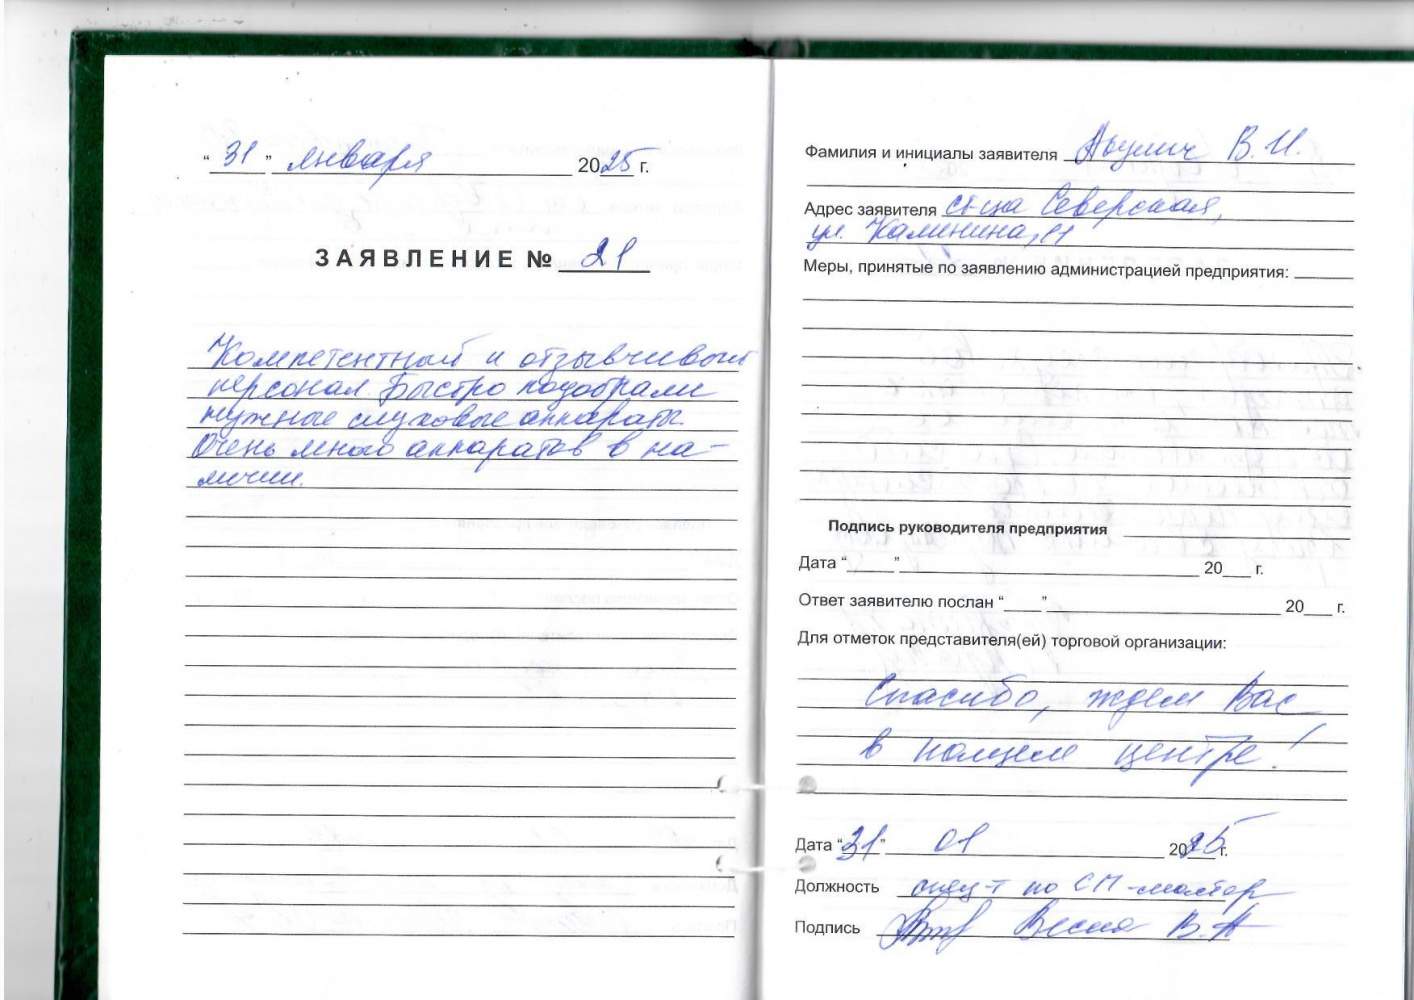 “31” января 2025 г.
ЗАЯВЛЕНИЕ № 21
Компетентный и отзывчивый
персонал. Быстро подобрали
нужные слуховые аппараты.
Очень много аппаратов в на-
личии.
Фамилия и инициалы заявителя Акулич В.И.
Адрес заявителя ст-ца Северская,
ул. Калинина,
Меры, принятые по заявлению администрацией предприятия:
Подпись руководителя предприятия
Дата “ ” 20 г.
Ответ заявителю послан “ ” 20 г.
Для отметок представителя(ей) торговой организации:
Спасибо, ждем Вас
в нашем центре!
Дата “31” 01 2025 г.
Должность спец-т по СП-мастер
Подпись Весна В.А